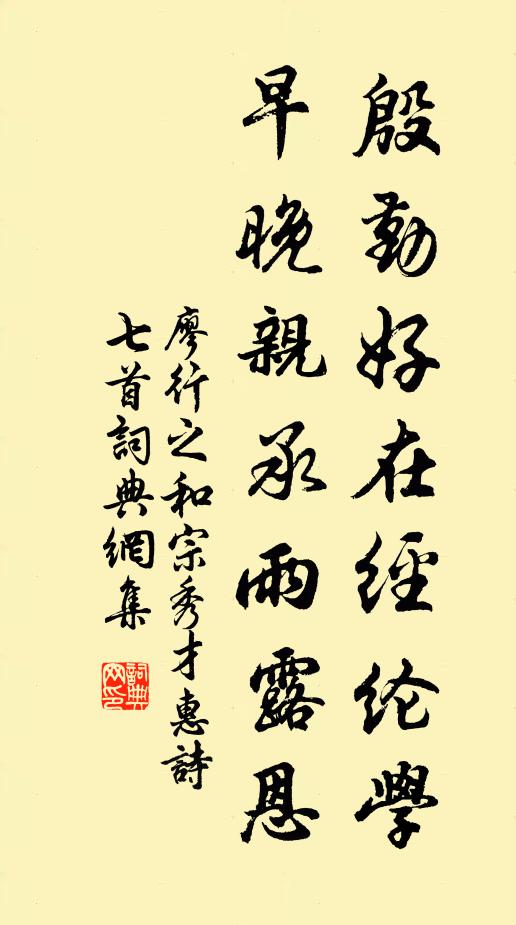 殷勤好在經纶學
早晚親承雨露恩
廖行之和宗秀才惠詩
七首詞典網集
詞典網印